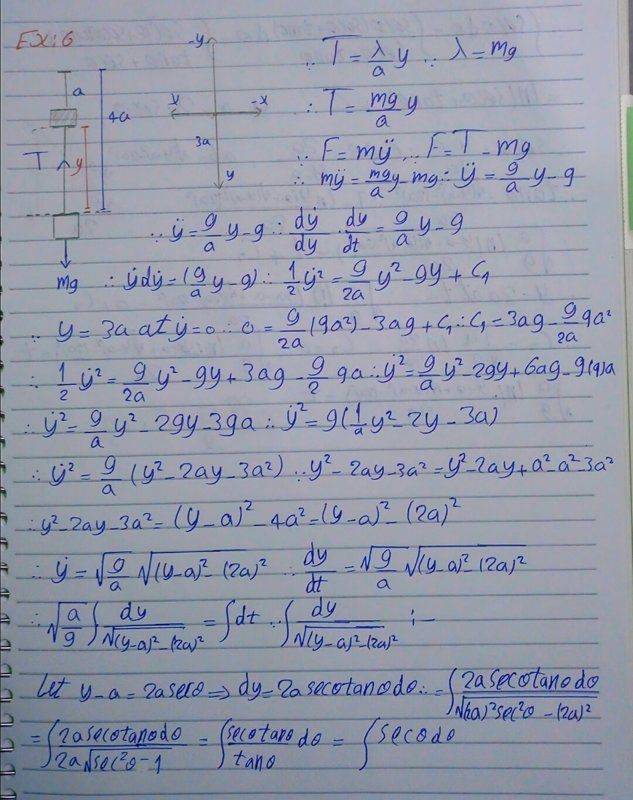 EX:6
a
4a
T
y
mg
-y
x
-x
3a
y
∵ T = λ/a y ∵ λ = mg
∴ T = mg/a y
∵ F = mÿ ∵ F = T - mg
∴ mÿ = mg/a y - mg ∴ ÿ = g/a y - g
∵ ÿ = g/a y - g ∴ dẏ/dy · dy/dt = g/a y - g
∴ ẏdẏ = (g/a y - g) ∴ 1/2 ẏ² = g/2a y² - gy + C₁
∵ y = 3a at ẏ = 0 ∴ 0 = g/2a (9a²) - 3ag + C₁ ∴ C₁ = 3ag - g/2a 9a²
∴ 1/2 ẏ² = g/2a y² - gy + 3ag - g/2 9a ∴ ẏ² = g/a y² - 2gy + 6ag - g(9)a
∴ ẏ² = g/a y² - 2gy - 3ga ∴ ẏ² = g(1/a y² - 2y - 3a)
∴ ẏ² = g/a (y² - 2ay - 3a²) ∵ y² - 2ay - 3a² = y² - 2ay + a² - a² - 3a²
∴ y² - 2ay - 3a² = (y - a)² - 4a² = (y - a)² - (2a)²
∴ ẏ = √g/a √(y-a)² - (2a)² ∴ dy/dt = √g/a √(y-a)² - (2a)²
∴ √a/g ∫ dy/√(y-a)² - (2a)² = ∫ dt ∵ ∫ dy/√(y-a)² - (2a)² :-
Let y - a = 2a secθ ⇒ dy = 2a secθ tanθ dθ ∴ = ∫ 2a secθ tanθ dθ/√(2a)² sec²θ - (2a)²
= ∫ 2a secθ tanθ dθ/2a√sec²θ - 1 = ∫ secθ tanθ/tanθ dθ = ∫ secθ dθ